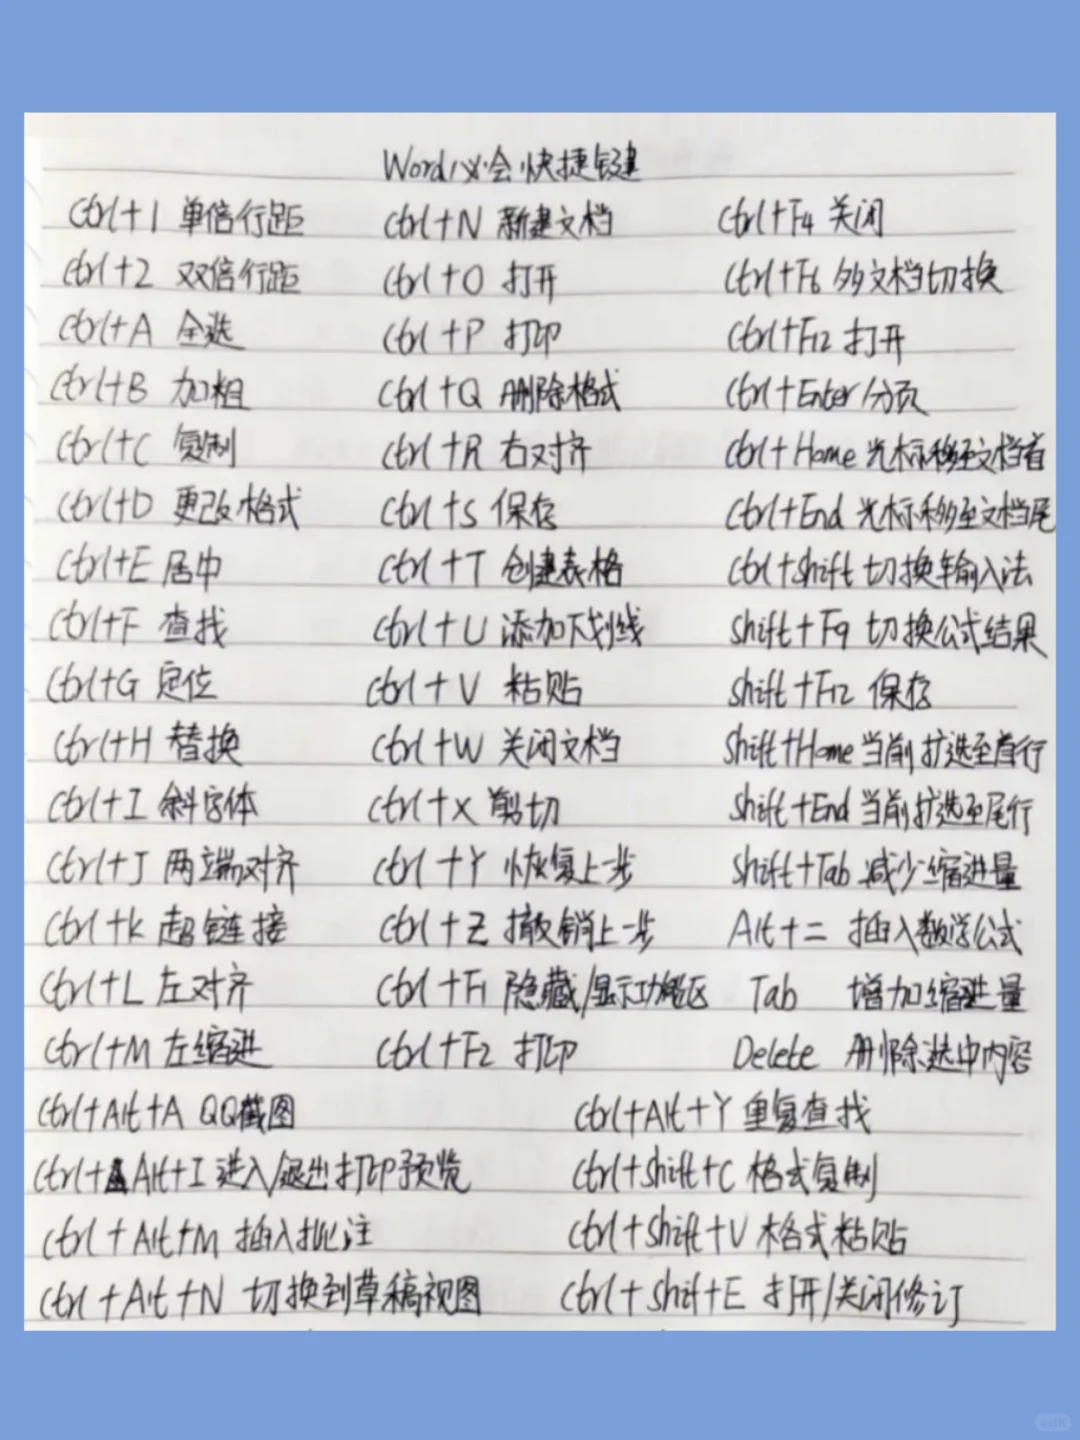 Word必会快捷键
Ctrl+1 单倍行距 Ctrl+N 新建文档 Ctrl+F4 关闭
Ctrl+2 双倍行距 Ctrl+O 打开 Ctrl+F6 多文档切换
Ctrl+A 全选 Ctrl+P 打印 Ctrl+F12 打开
Ctrl+B 加粗 Ctrl+Q 删除格式 Ctrl+Enter 分页
Ctrl+C 复制 Ctrl+R 右对齐 Ctrl+Home 光标移至文档首
Ctrl+D 更改格式 Ctrl+S 保存 Ctrl+End 光标移至文档尾
Ctrl+E 居中 Ctrl+T 创建表格 Ctrl+Shift 切换输入法
Ctrl+F 查找 Ctrl+U 添加下划线 Shift+F9 切换公式结果
Ctrl+G 定位 Ctrl+V 粘贴 Shift+F12 保存
Ctrl+H 替换 Ctrl+W 关闭文档 Shift+Home 当前扩选至首行
Ctrl+I 斜字体 Ctrl+X 剪切 Shift+End 当前扩选至尾行
Ctrl+J 两端对齐 Ctrl+Y 恢复上一步 Shift+Tab 减少缩进量
Ctrl+K 超链接 Ctrl+Z 撤销上一步 Alt+= 插入数学公式
Ctrl+L 左对齐 Ctrl+F1 隐藏/显示功能区 Tab 增加缩进量
Ctrl+M 左缩进 Ctrl+F2 打印 Delete 删除选中内容
Ctrl+Alt+A QQ截图 Ctrl+Alt+Y 重复查找
Ctrl+Alt+I 进入/退出打印预览 Ctrl+Shift+C 格式复制
Ctrl+Alt+M 插入批注 Ctrl+Shift+V 格式粘贴
Ctrl+Alt+N 切换到草稿视图 Ctrl+Shift+E 打开/关闭修订